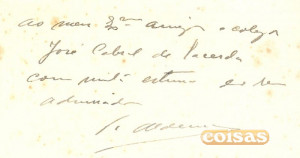 ao meu Exmo amigo e colega
José Cabral de Lacerda
com muita estima e
admirador
coisas